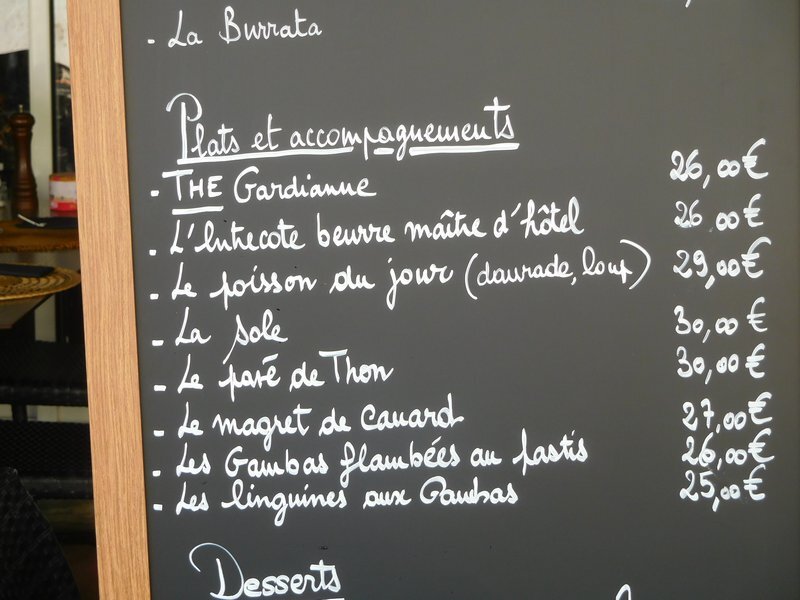 - La Burrata
Plats et accompagnements
- THE Gardianne 26,00€
- L'Entrecote beurre maître d'hôtel 26,00€
- Le poisson du jour (daurade, loup) 29,00€
- La sole 30,00€
- Le pavé de Thon 30,00€
- Le magret de canard 27,00€
- Les Gambas flambées au pastis 26,00€
- Les linguines aux Gambas 25,00€
Desserts